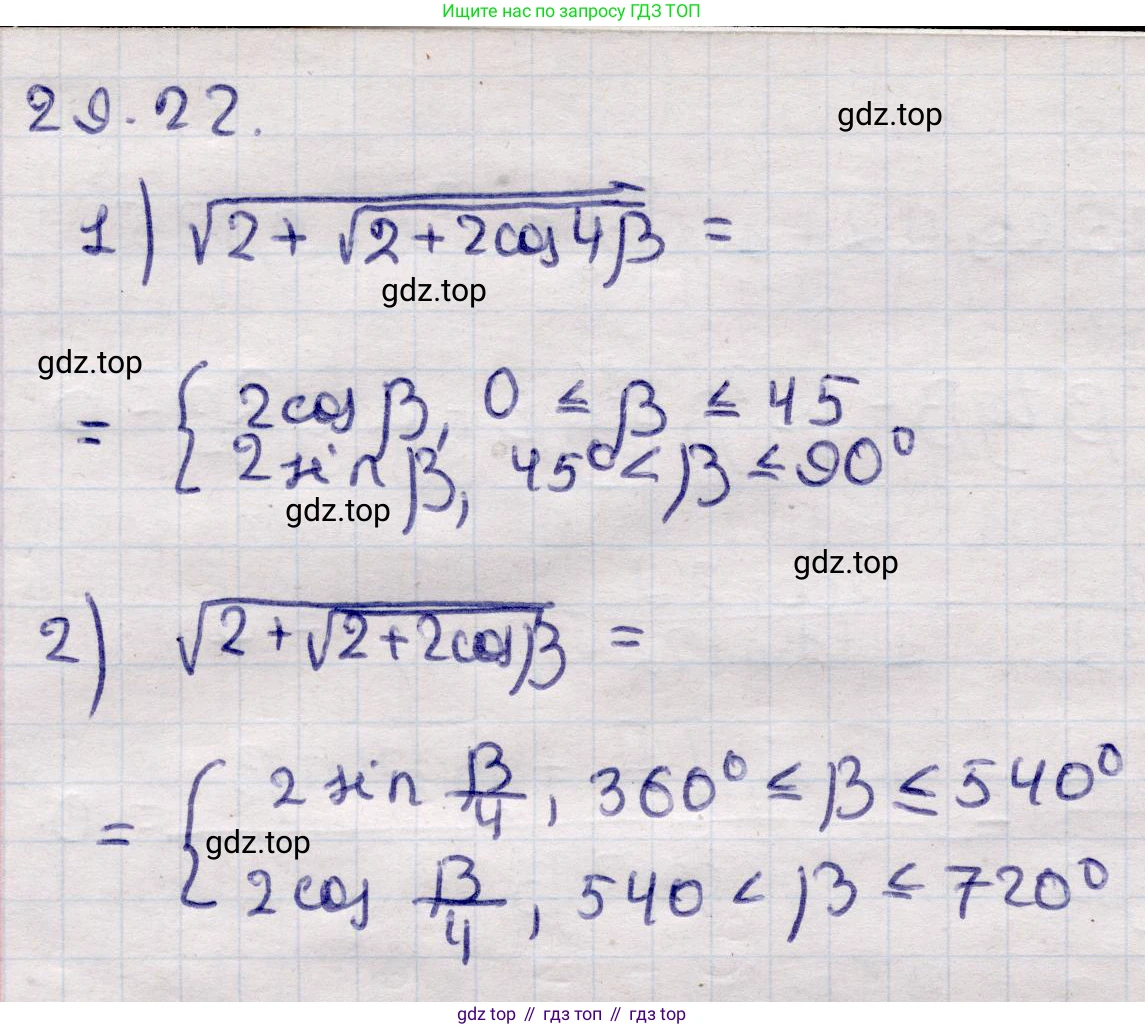 Ищите нас по запросу ГДЗ ТОП
29.22.
gdz.top
1) √(2 + √(2 + 2cos 4β)) =
gdz.top
gdz.top
= { 2cos β, 0 ≤ β ≤ 45
2 sin β, 45° < β ≤ 90°
gdz.top
gdz.top
2) √(2 + √(2 + 2cos β)) =
= { 2 sin β/4, 360° ≤ β ≤ 540°
gdz.top
2 cos β/4, 540 < β ≤ 720°
gdz top // гдз топ // gdz top